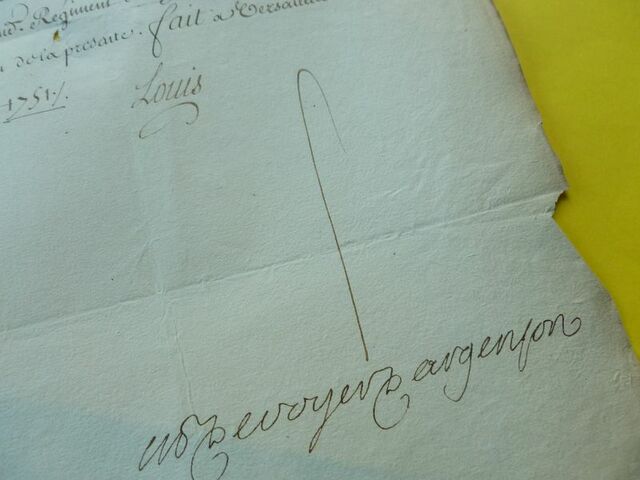 Regiment
de la presente. fait a Versailles
1751./. Louis
MPDevoyerDargenson